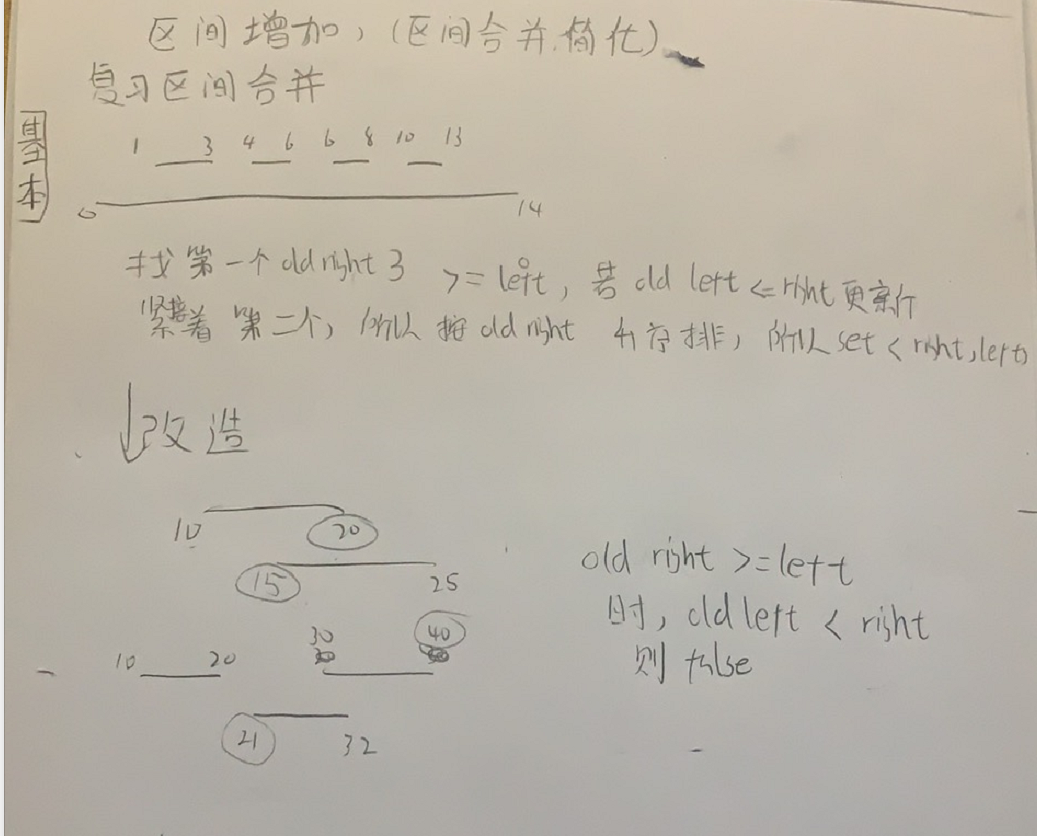 区间增加，(区间合并.简化)
复习区间合并
基本
1 3 4 6 6 8 10 13
0 14
找第一个 old right 3 >= left, 若 old left <= right 更新
0
紧接着 第二个, 所以 按 old right 升序排, 所以 set < right, left>
改造
10 20
15 25
30 40
10 20
21 32
old right >= left
时, old left < right
则 false